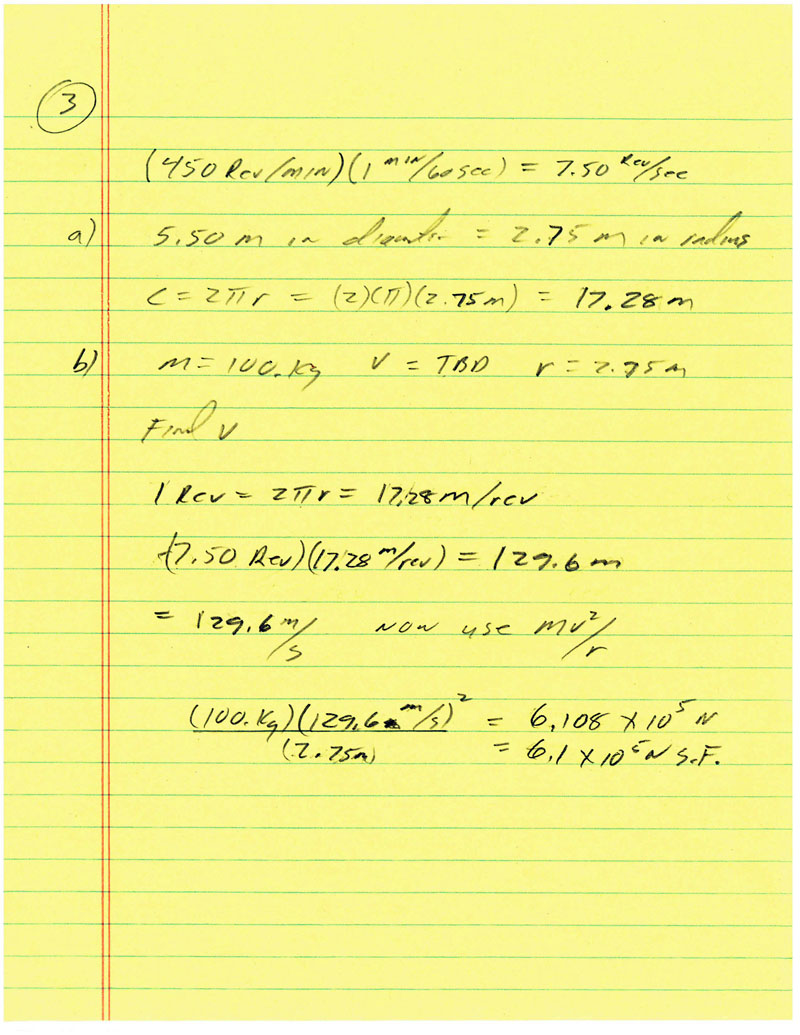 3
(450 Rev/min)(1 min/60 sec) = 7.50 Rev/sec
a) 5.50 m in diameter = 2.75 m in radius
C = 2πr = (2)(π)(2.75m) = 17.28 m
b) m = 100. Kg V = TBD r = 2.75 m
Find V
1 Rev = 2πr = 17.28 m/rev
(7.50 Rev)(17.28 m/rev) = 129.6 m
= 129.6 m/s Now use mv²/r
(100. Kg)(129.6 m/s)² = 6.108 x 10⁵ N
(2.75m) = 6.1 x 10⁵ N S.F.